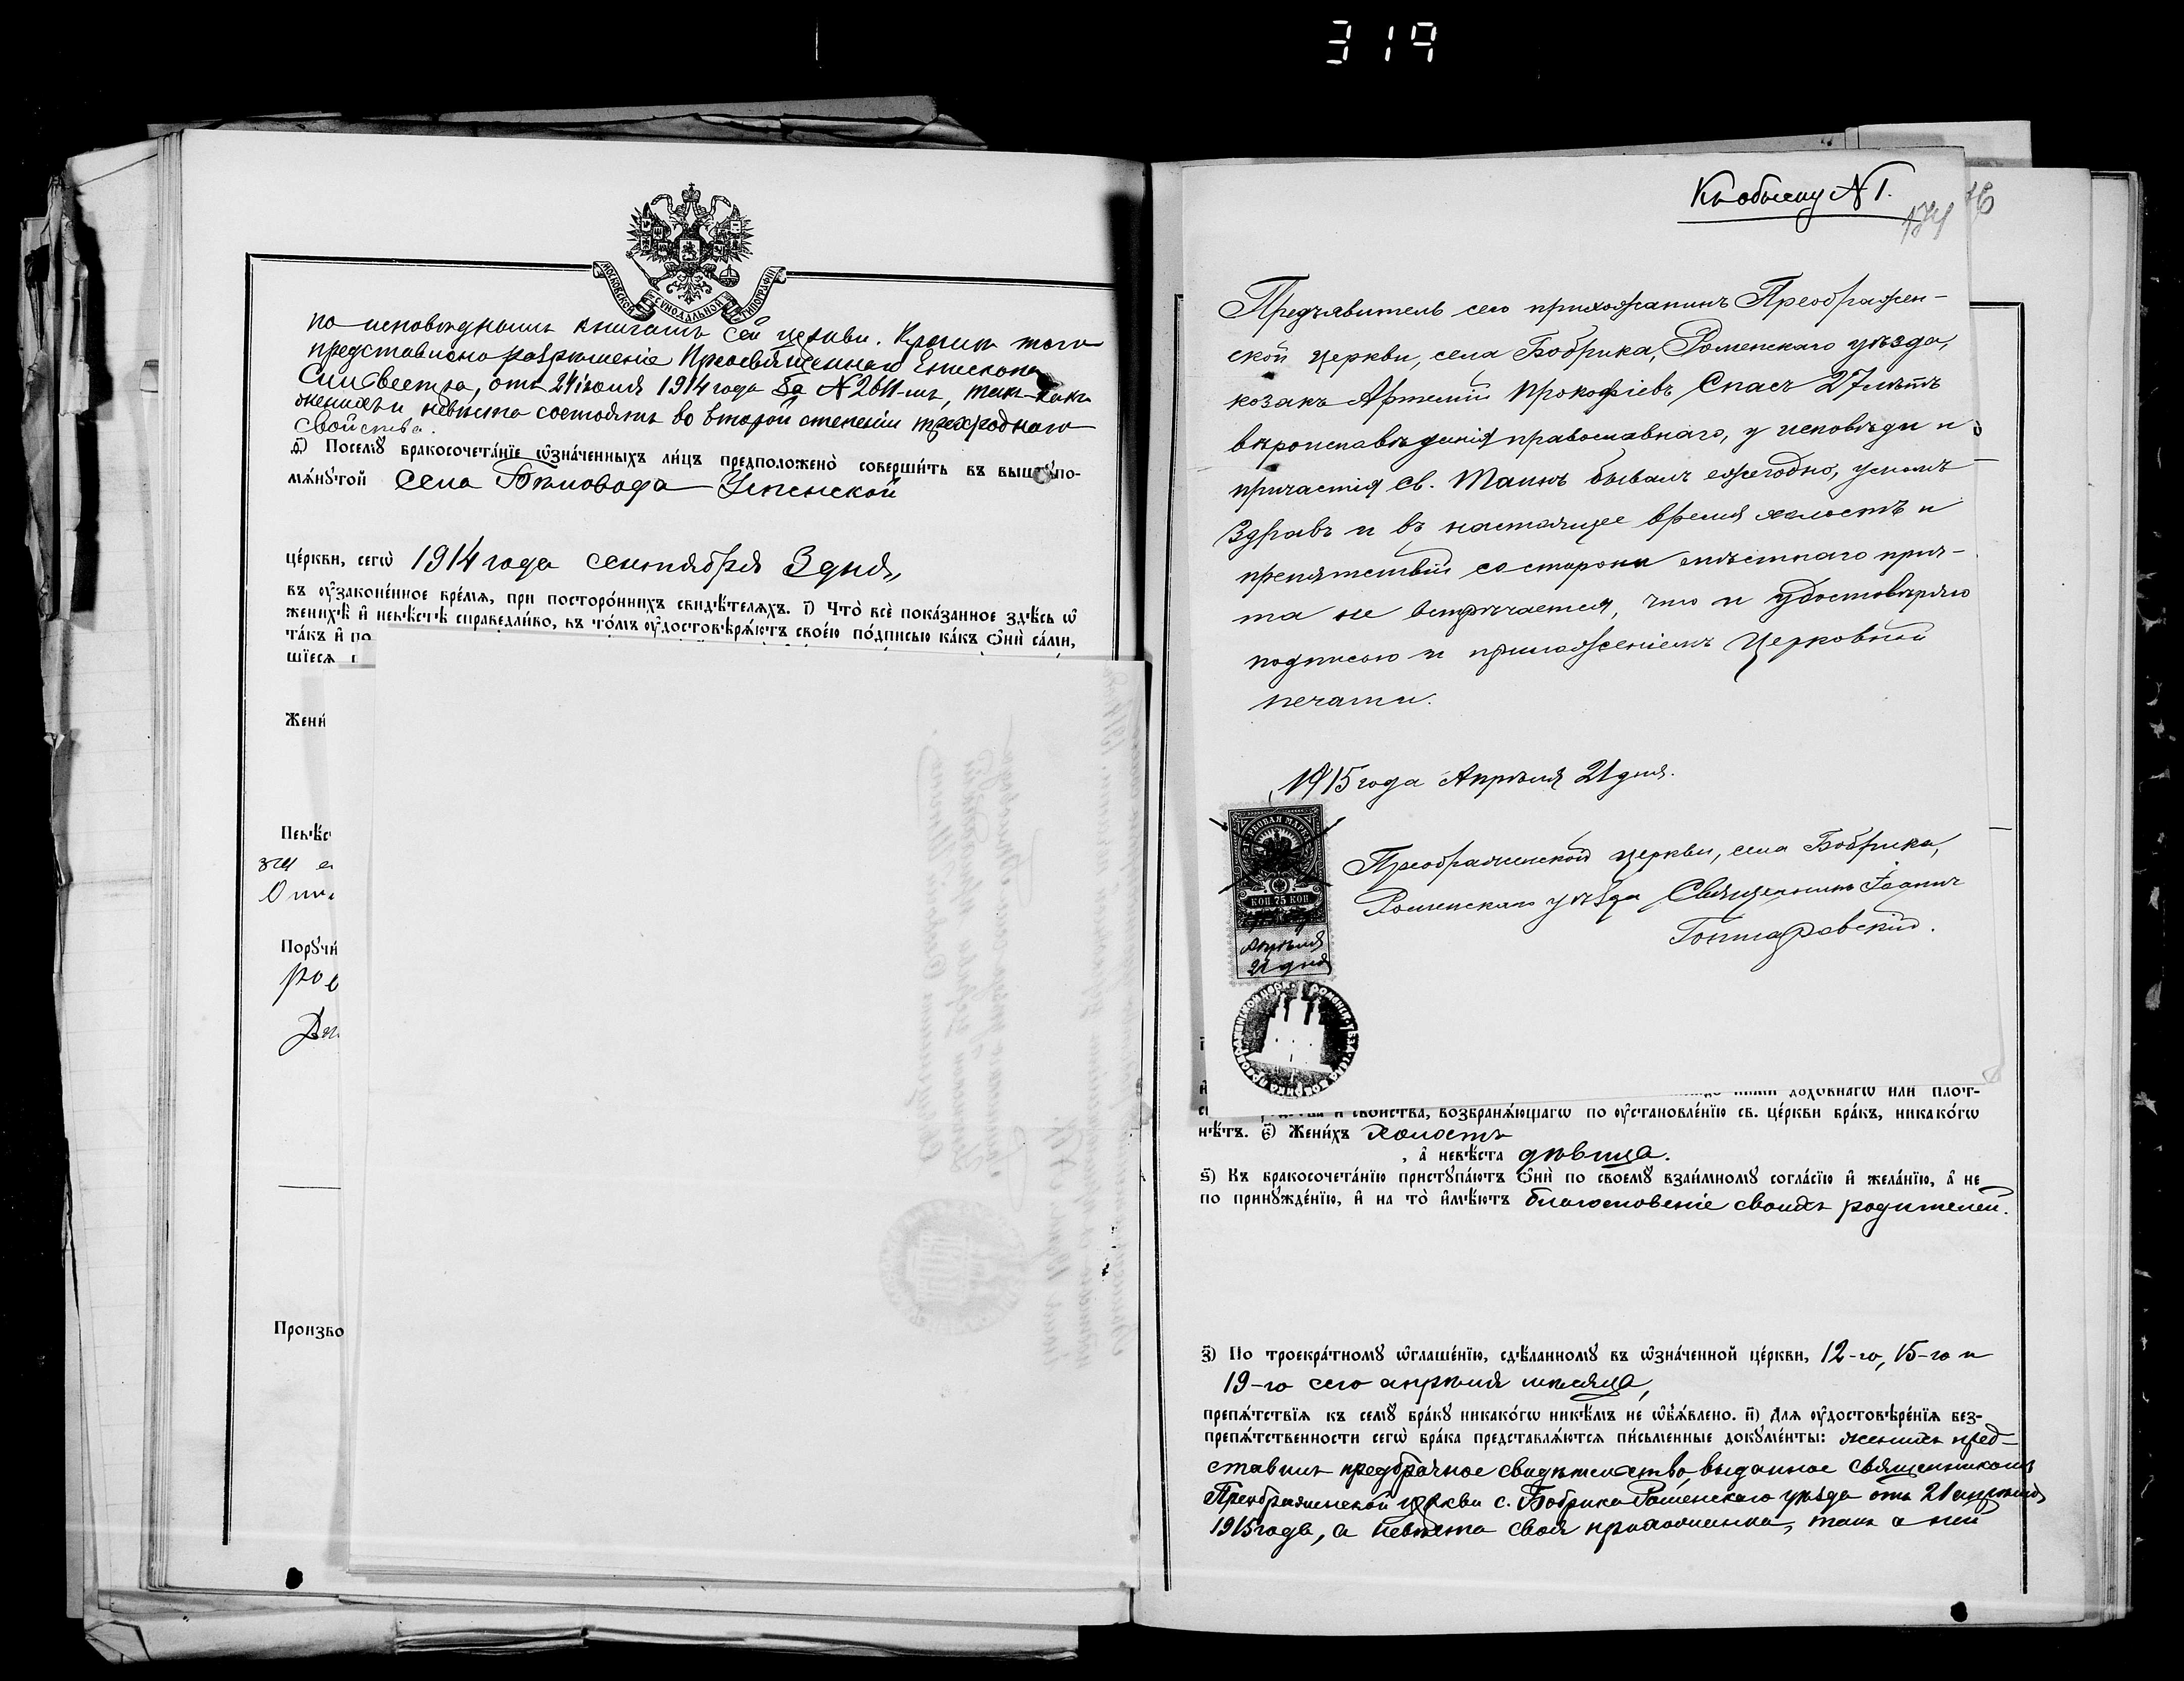 319
МОСКОВСКОЙ СѴНОДАЛЬНОЙ ТИПОГРАФІИ
по исповѣднымъ книгамъ сей церкви. Кромѣ того
представлено разрѣшеніе Преосвященнаго Епископа
Сильвестра, отъ 24 іюля 1914 года за № 2611-мъ, такъ-какъ
женихъ и невѣста состоятъ во второй степени трехроднаго
свойства.
д҃) Посемꙋ̀ бракосочета́нїе ѡ҆зна́ченныхъ ли́цъ предположено̀ соверши́ть въ вышеꙋпо-
мѧ́нꙋтой села Бѣловода Успенской
це́ркви, сегѡ̀ 1914 года сентября 3 дня,
въ ᲂу҆законе́нное вре́мѧ, при посторо́ннихъ свидѣ́телѧхъ. і҃) Что̀ всѐ пока́занное здѣ́сь ѡ҆
женихѣ̀ и҆ невѣ́стѣ справедли́во, въ то́мъ ᲂу҆достовѣрѧ́ютъ свое́ю по́дписью ка́къ ѻ҆нѝ са́ми,
та́къ и҆ по
шїесѧ
Жени́
Невѣ́с
Порꙋчи́
Произво
Къ обыску № 1.
174
Предъявитель сего прихожанинъ Преображен-
ской церкви, села Бобрика, Роменскаго уѣзда,
козакъ Артемій Прокофіевъ Спасъ 27 лѣтъ
вѣроисповѣданія православнаго, у исповѣди и
причастія Св. Таинъ бывалъ ежегодно, умомъ
здравъ и въ настоящее время холостъ и
препятствій со стороны мѣстнаго прич-
та не встрѣчается, что и удостовѣряю
подписью и приложеніемъ Церковной
печати.
1915 года Апрѣля 21 дня.
ГЕРБОВАЯ МАРКА
КОП 75 КОП
Апрѣля
21 дня
Преображенской церкви, села Бобрика,
Роменскаго уѣзда Священникъ Іоаннъ
дꙋхо́внагѡ и҆ли̇̀ пло́т-
и҆ сво́йства, возбранѧ́ющагѡ по ᲂу҆становле́нїю св. це́ркви бра́къ, никако́гѡ
нѣ́тъ. є҃) Жени́хъ холостъ
, а҆ невѣ́ста дѣвица.
ѕ҃) Къ бракосочета́нїю пристꙋпа́ютъ ѻ҆нѝ по своемꙋ̀ взаи́мномꙋ согла́сїю и҆ жела́нїю, а҆ не
по принꙋжде́нїю, и҆ на то̀ и҆мѣ́ютъ благословеніе своихъ родителей.
з҃) По троекра́тномꙋ ѡ҆глаше́нїю, сдѣ́ланномꙋ въ ѡ҆зна́ченной це́ркви, 12-го, 15-го и
19-го сего апрѣля мѣсяца,
препѧ́тствїѧ къ семꙋ̀ бра́кꙋ никако́гѡ никѣ́мъ не ѡ҆б̾ѧ́влено. и҃) Длѧ ᲂу҆достовѣре́нїѧ без-
препѧ́тственности сегѡ̀ бра́ка представлѧ́ютсѧ пи́сьменные докꙋме́нты: женихъ пред-
ставилъ предбрачное свидѣтельство, выданное священникомъ
Преображенской церкви с. Бобрика Роменскаго уѣзда отъ 21 апрѣля
1915 года, а невѣста своя прихожанка, такъ о ней